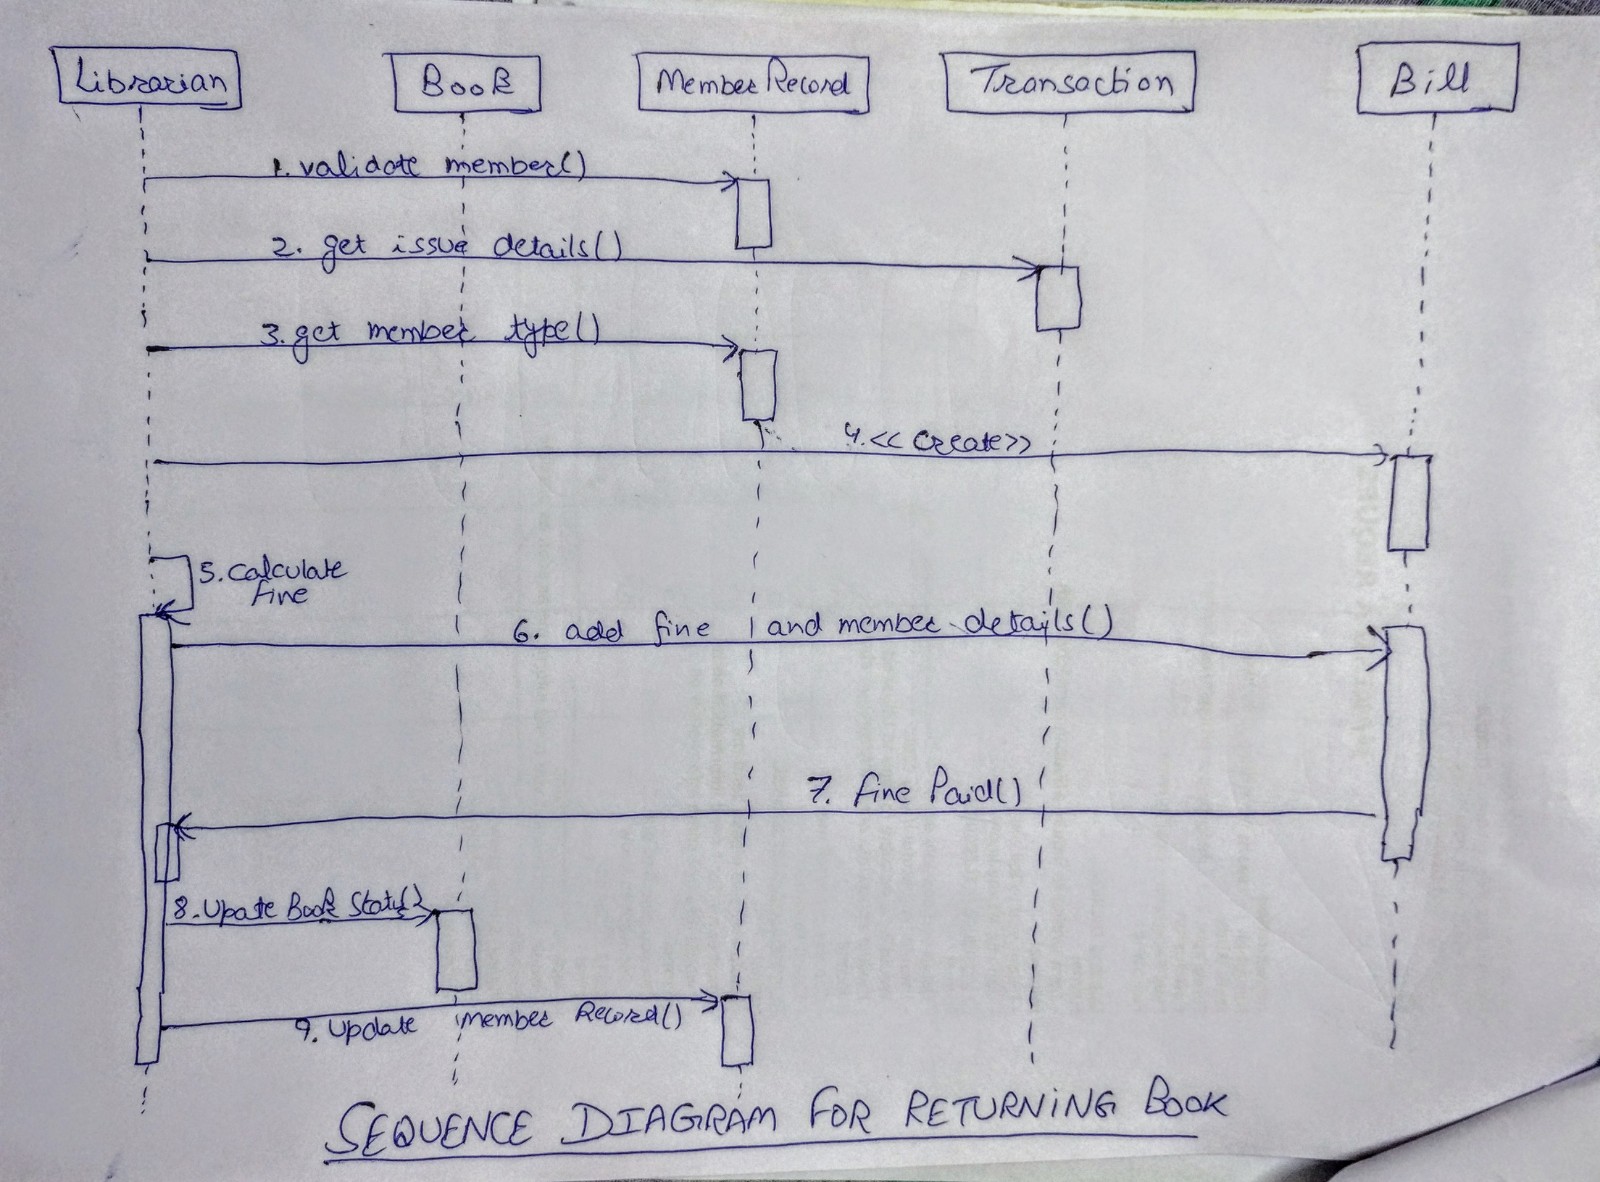 Librarian
Book
Member Record
Transaction
Bill
1. validate member()
2. get issue details()
3. get member type()
4. << create >>
5. Calculate
fine
6. add fine and member details()
7. fine Paid()
8. Upate Book Status()
9. Update Member Record()
SEQUENCE DIAGRAM FOR RETURNING BOOK